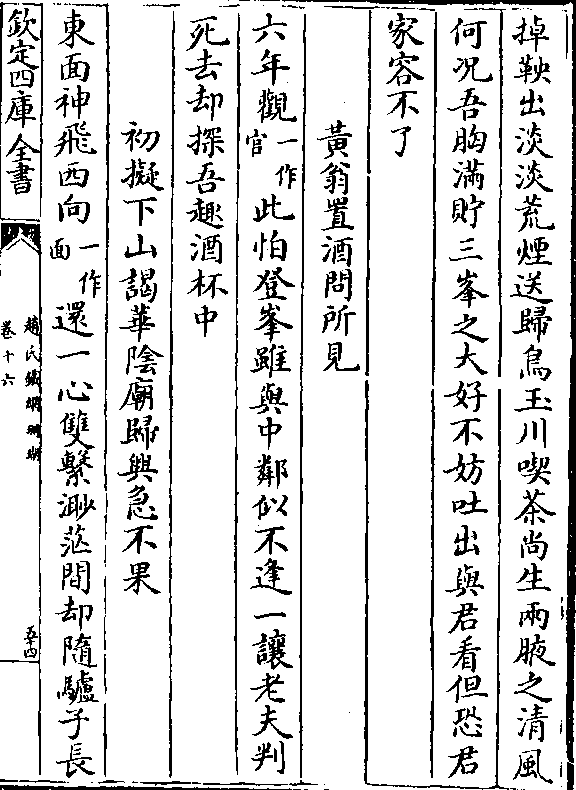 掉鞅出淡淡荒煙送歸鳥玉川喫茶尚生兩腋之清風
何況吾胸滿貯三峯之大好不妨吐出與君看但恐君
家容不了
黃翁置酒問所見
六年觀一作官此怕登峯雖與中鄰似不逢一讓老夫判
死去却探吾趣酒杯中
初擬下山謁華陰廟歸興急不果
東面神飛西向一作面還一心雙繫渺茫間却隨驢子長
欽定四庫全書
趙氏鐵網珊瑚
卷十六
五十四